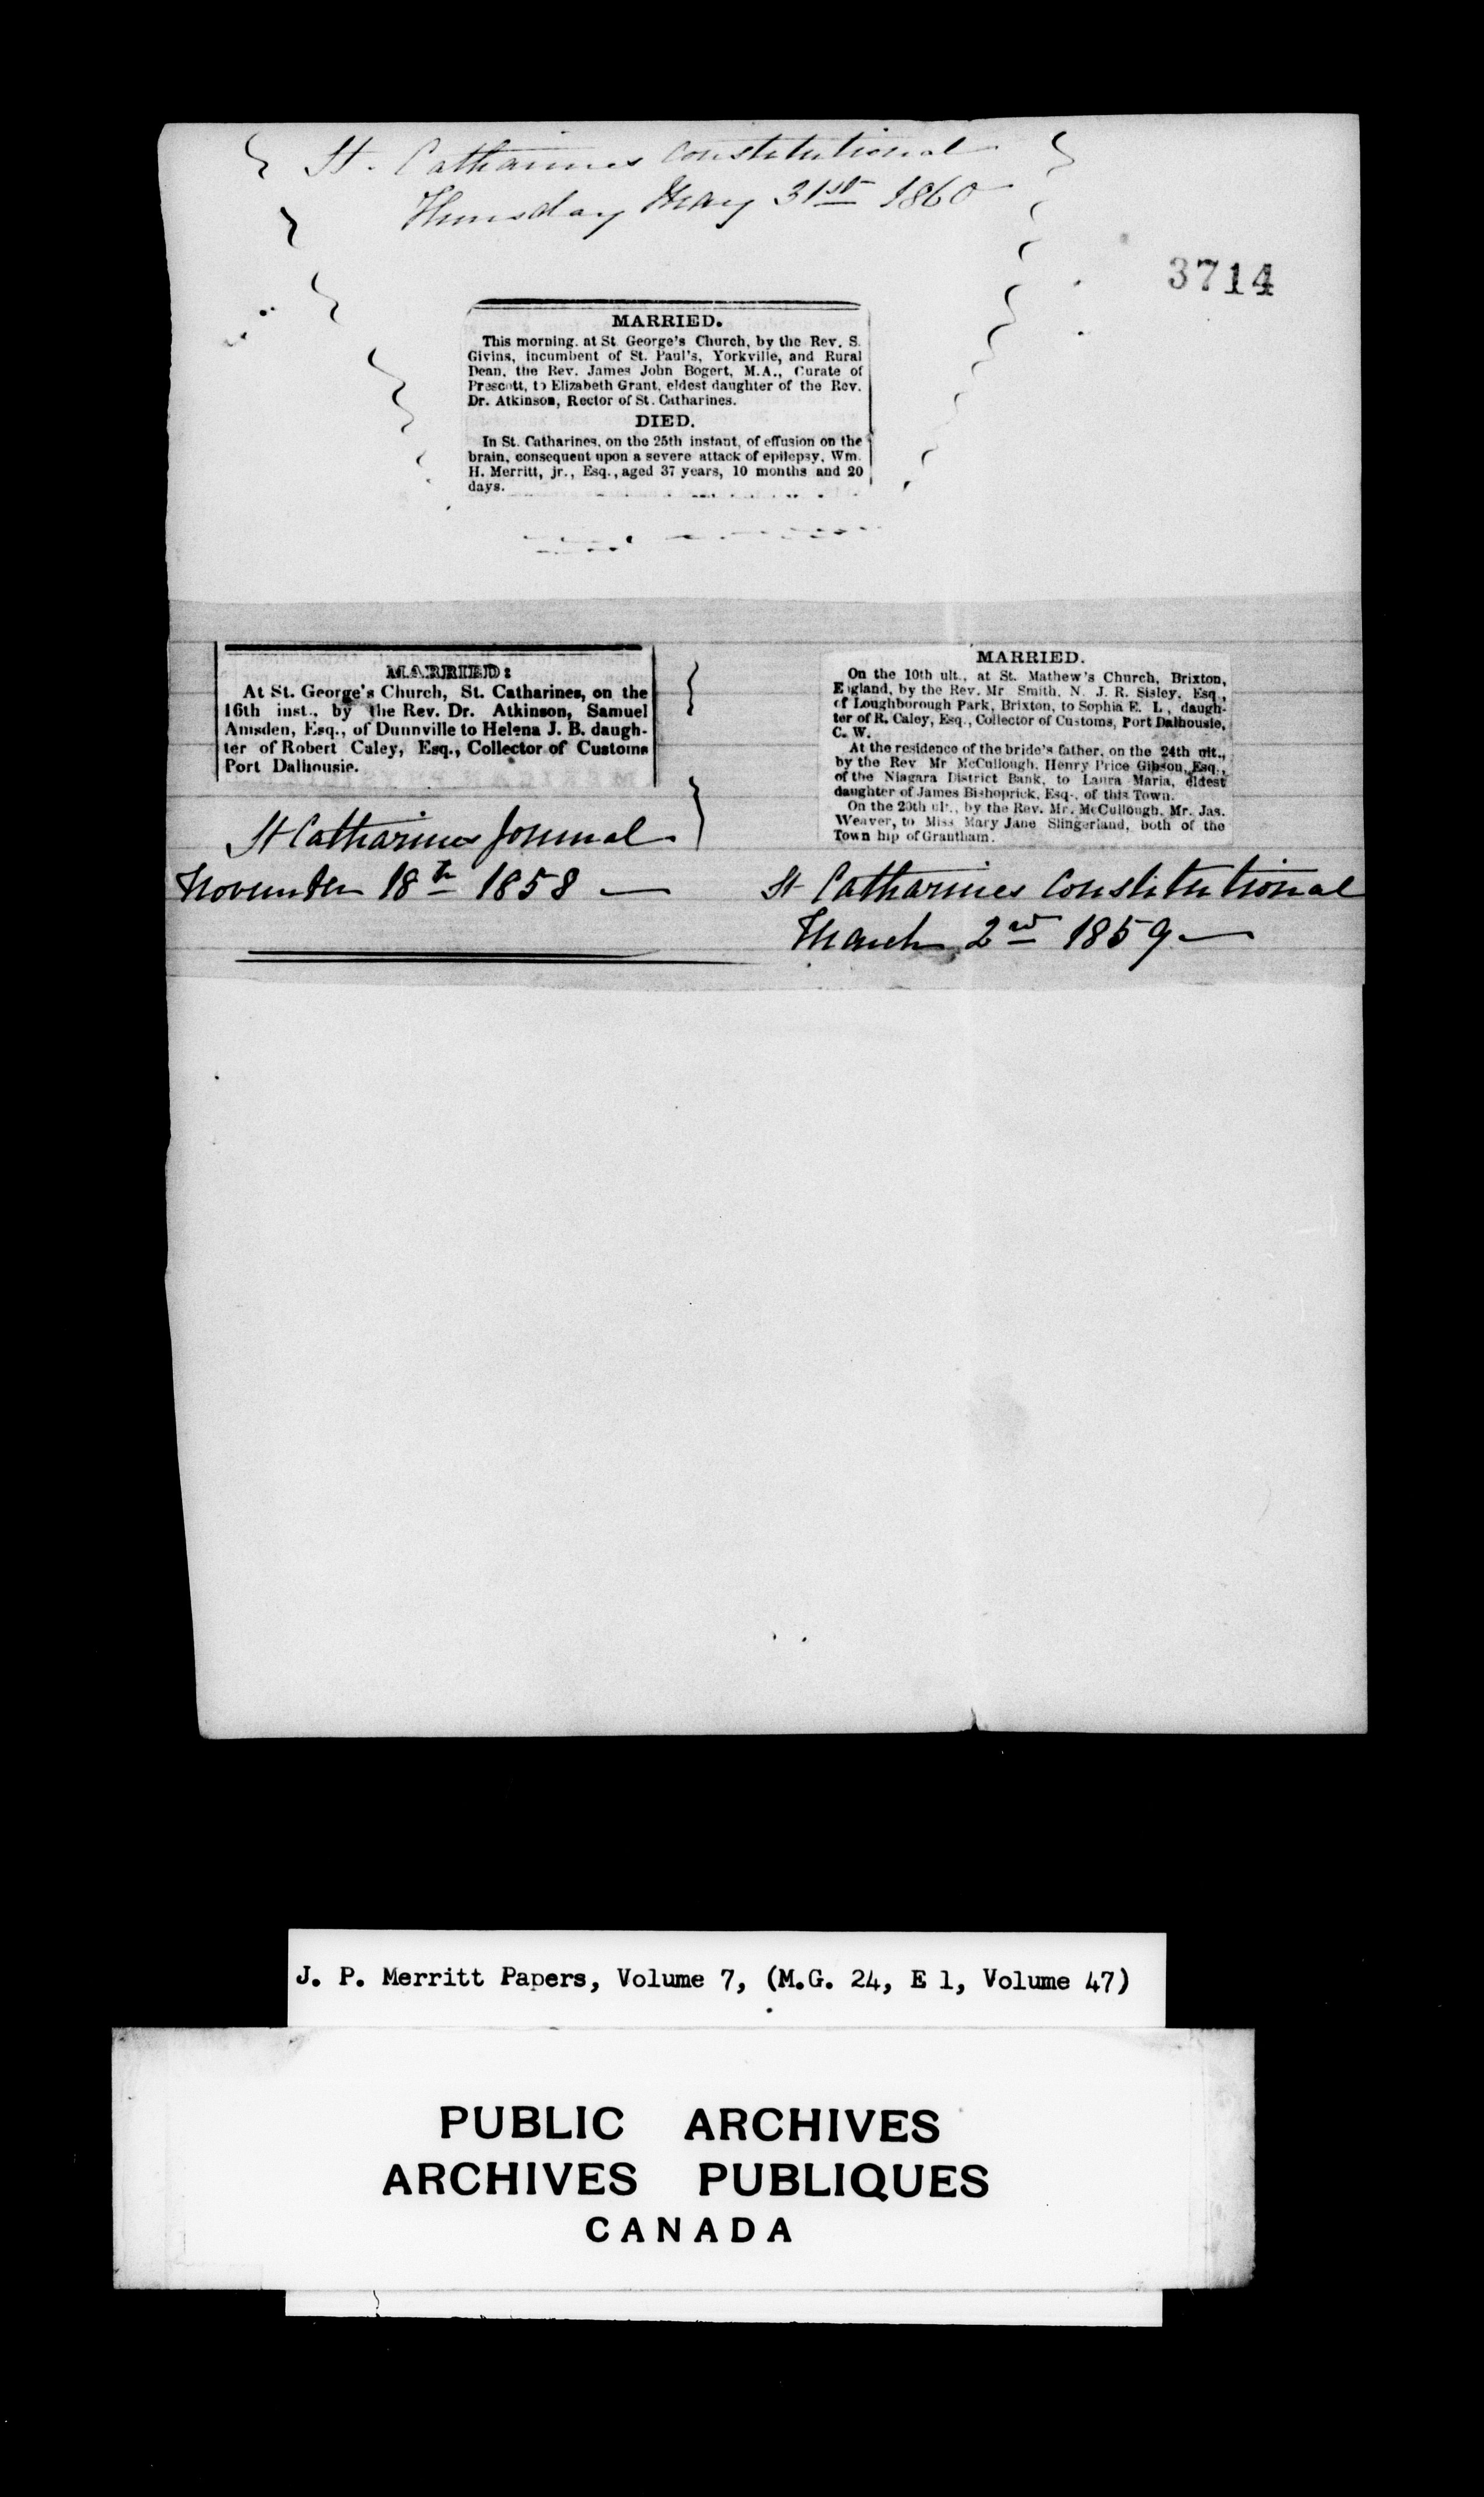 St. Catharines Constitutional
Thursday May 31st 1860
3714
MARRIED.
This morning, at St George's Church, by the Rev. S.
Givins, incumbent of St. Paul's, Yorkville, and Rural
Dean, the Rev. James John Bogert, M.A., Curate of
Prescott, to Elizabeth Grant, eldest daughter of the Rev.
Dr. Atkinson, Rector of St. Catharines.
DIED.
In St. Catharines, on the 25th instant, of effusion on the
brain, consequent upon a severe attack of epilepsy, Wm.
H. Merritt, jr., Esq., aged 37 years, 10 months and 20
days.
MARRIED:
At St. George's Church, St. Catharines, on the
16th inst., by the Rev. Dr. Atkinson, Samuel
Amsden, Esq., of Dunnville to Helena J. B. daugh-
ter of Robert Caley, Esq., Collector of Customs
Port Dalhousie.
St Catharines Journal
November 18th 1858 —
MARRIED.
On the 10th ult., at St. Mathew's Church, Brixton,
England, by the Rev. Mr Smith, N. J. R. Sisley, Esq.,
of Loughborough Park, Brixton, to Sophia E. L., daugh-
ter of R. Caley, Esq., Collector of Customs, Port Dalhousie,
C. W.
At the residence of the bride's father, on the 24th ult.,
by the Rev Mr McCullough, Henry Price Gibson, Esq.,
of the Niagara District Bank, to Laura Maria, eldest
daughter of James Bishoprick, Esq., of this Town.
On the 20th ult., by the Rev. Mr. McCullough, Mr. Jas.
Weaver, to Miss Mary Jane Slingerland, both of the
Town hip of Grantham.
St Catharines Constitutional
March 2nd 1859 —
J. P. Merritt Papers, Volume 7, (M.G. 24, E 1, Volume 47)
PUBLIC ARCHIVES
ARCHIVES PUBLIQUES
CANADA